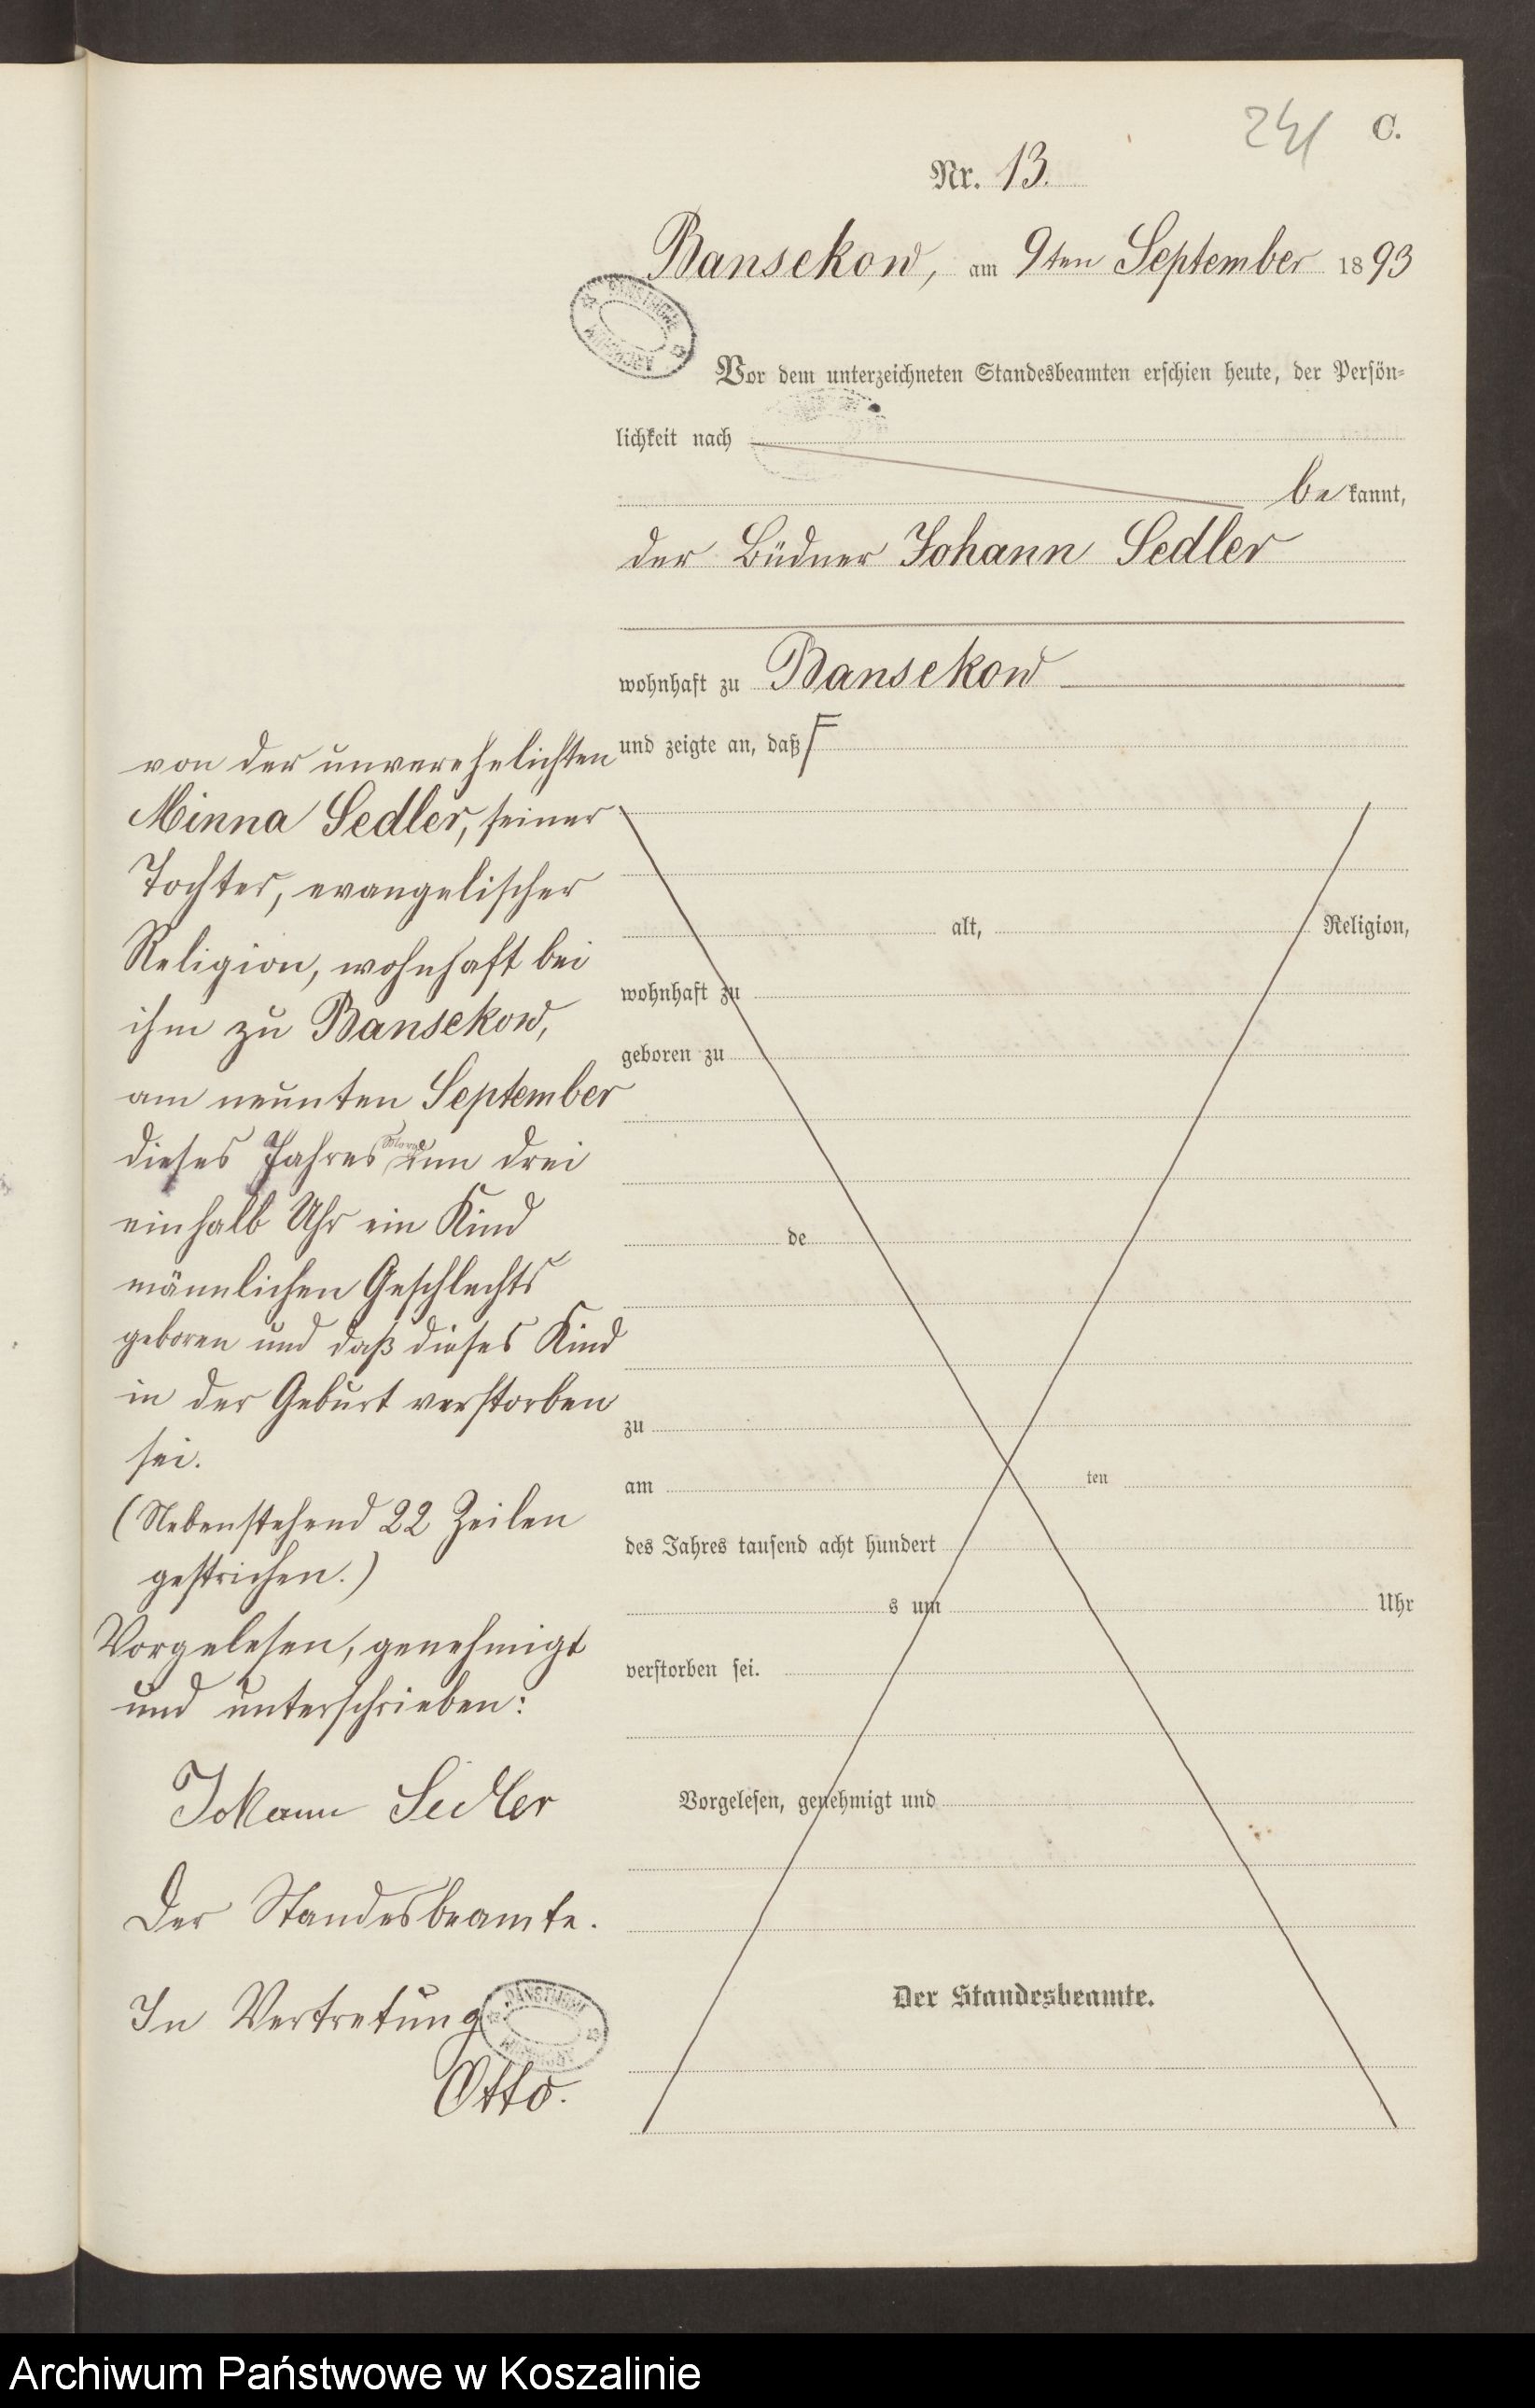 241 C.
Nr. 13.
Bansekow, am 9ten September 1893
PAŃSTWOWE ARCHIWUM
Vor dem unterzeichneten Standesbeamten erschien heute, der Persön-
lichkeit nach
be kannt,
der Büdner Johann Sedler
wohnhaft zu Bansekow
und zeigte an, daß
von der unverehelichten
Minna Sedler, seiner
Tochter, evangelischer
Religion, wohnhaft bei
ihm zu Bansekow,
am neunten September
dieses Jahres um drei
einhalb Uhr ein Kind
männlichen Geschlechts
geboren und daß dieses Kind
in der Geburt verstorben
sei.
(Nebenstehend 22 Zeilen
gestrichen.)
Vorgelesen, genehmigt
und unterschrieben:
Johann Sedler
Der Standesbeamte.
In Vertretung
PAŃSTWOWE ARCHIWUM
Otto.
alt, Religion,
wohnhaft zu
geboren zu
de
zu
am ten
des Jahres tausend acht hundert
s um Uhr
verstorben sei.
Vorgelesen, genehmigt und
Der Standesbeamte.
Archiwum Państwowe w Koszalinie